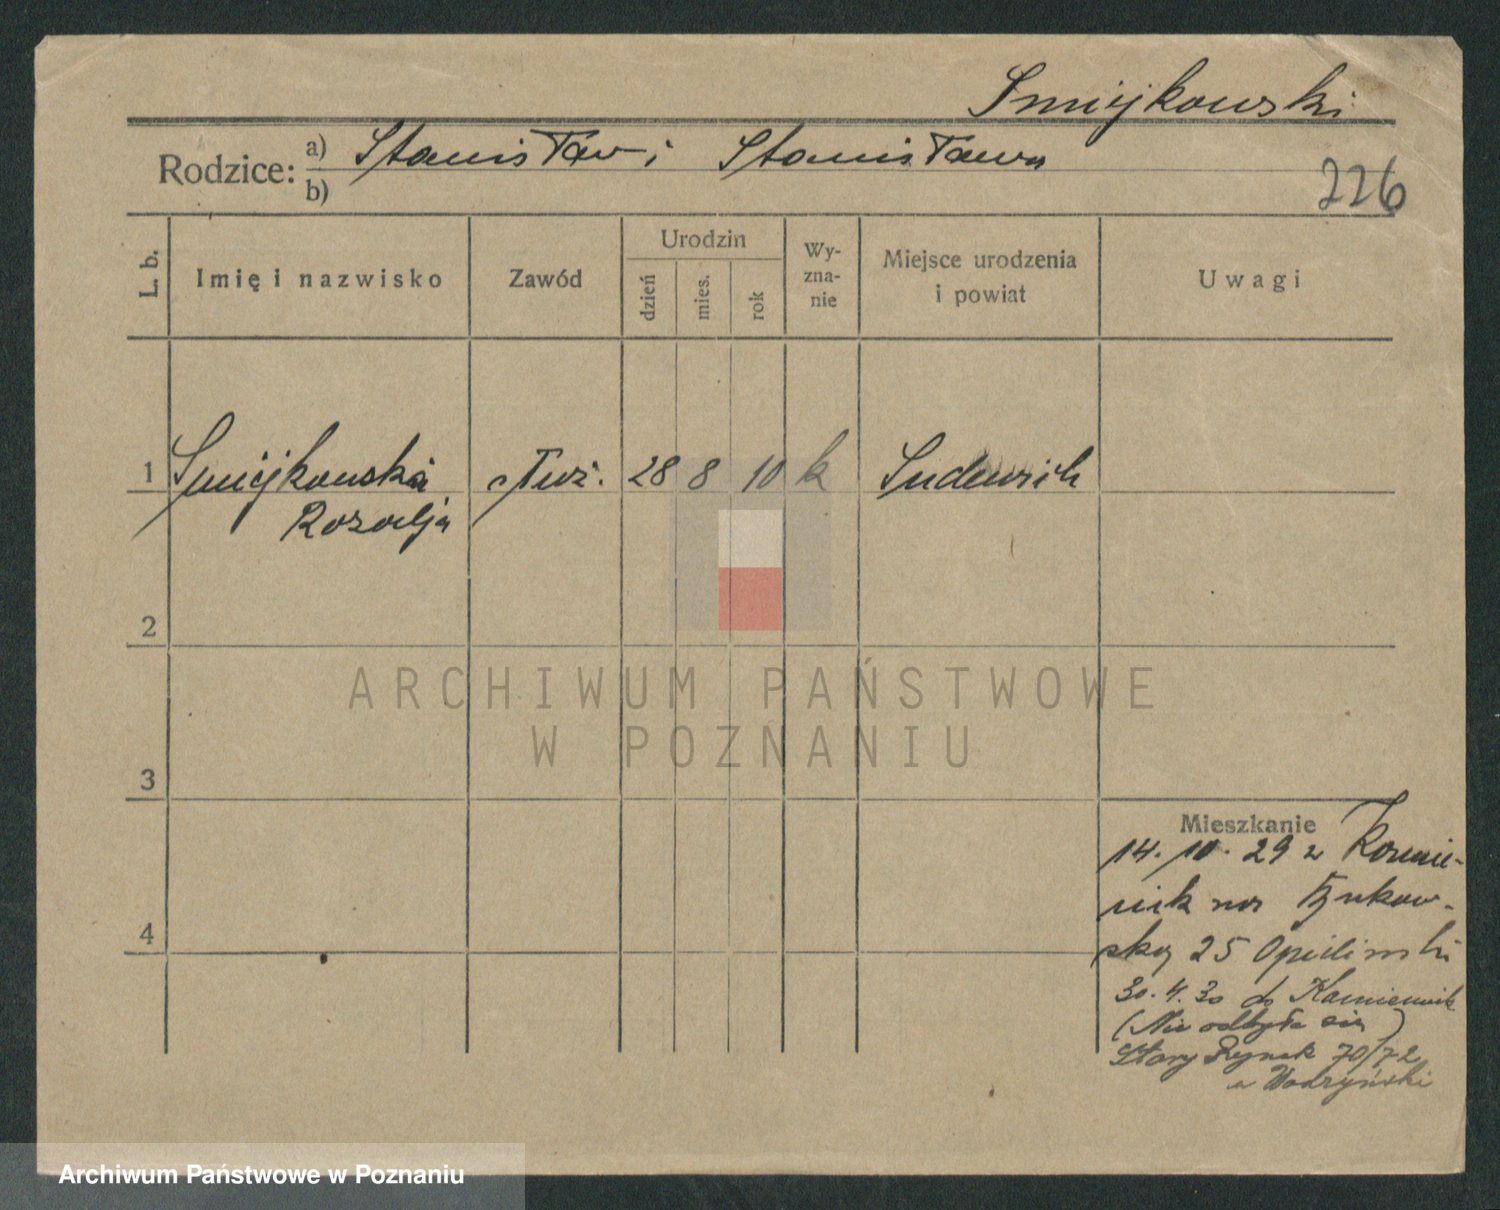 Smiejkowski
Rodzice: a) Stanisław i Stanisława
b)
226
L. b.
Imię i nazwisko
Zawód
Urodzin
dzień
mies.
rok
Wy-
zna-
nie
Miejsce urodzenia
i powiat
Uwagi
1 Smiejkowska służ. 28 8 10 k
Rozalja
2
ARCHIWUM PAŃSTWOWE
W POZNANIU
3
Mieszkanie
14. 10. 29 z
4
25
30. 4. 30 do Kamiennik
(Nie odbyła się)
Stary Rynek 70/72
u Wodzyński
Archiwum Państwowe w Poznaniu